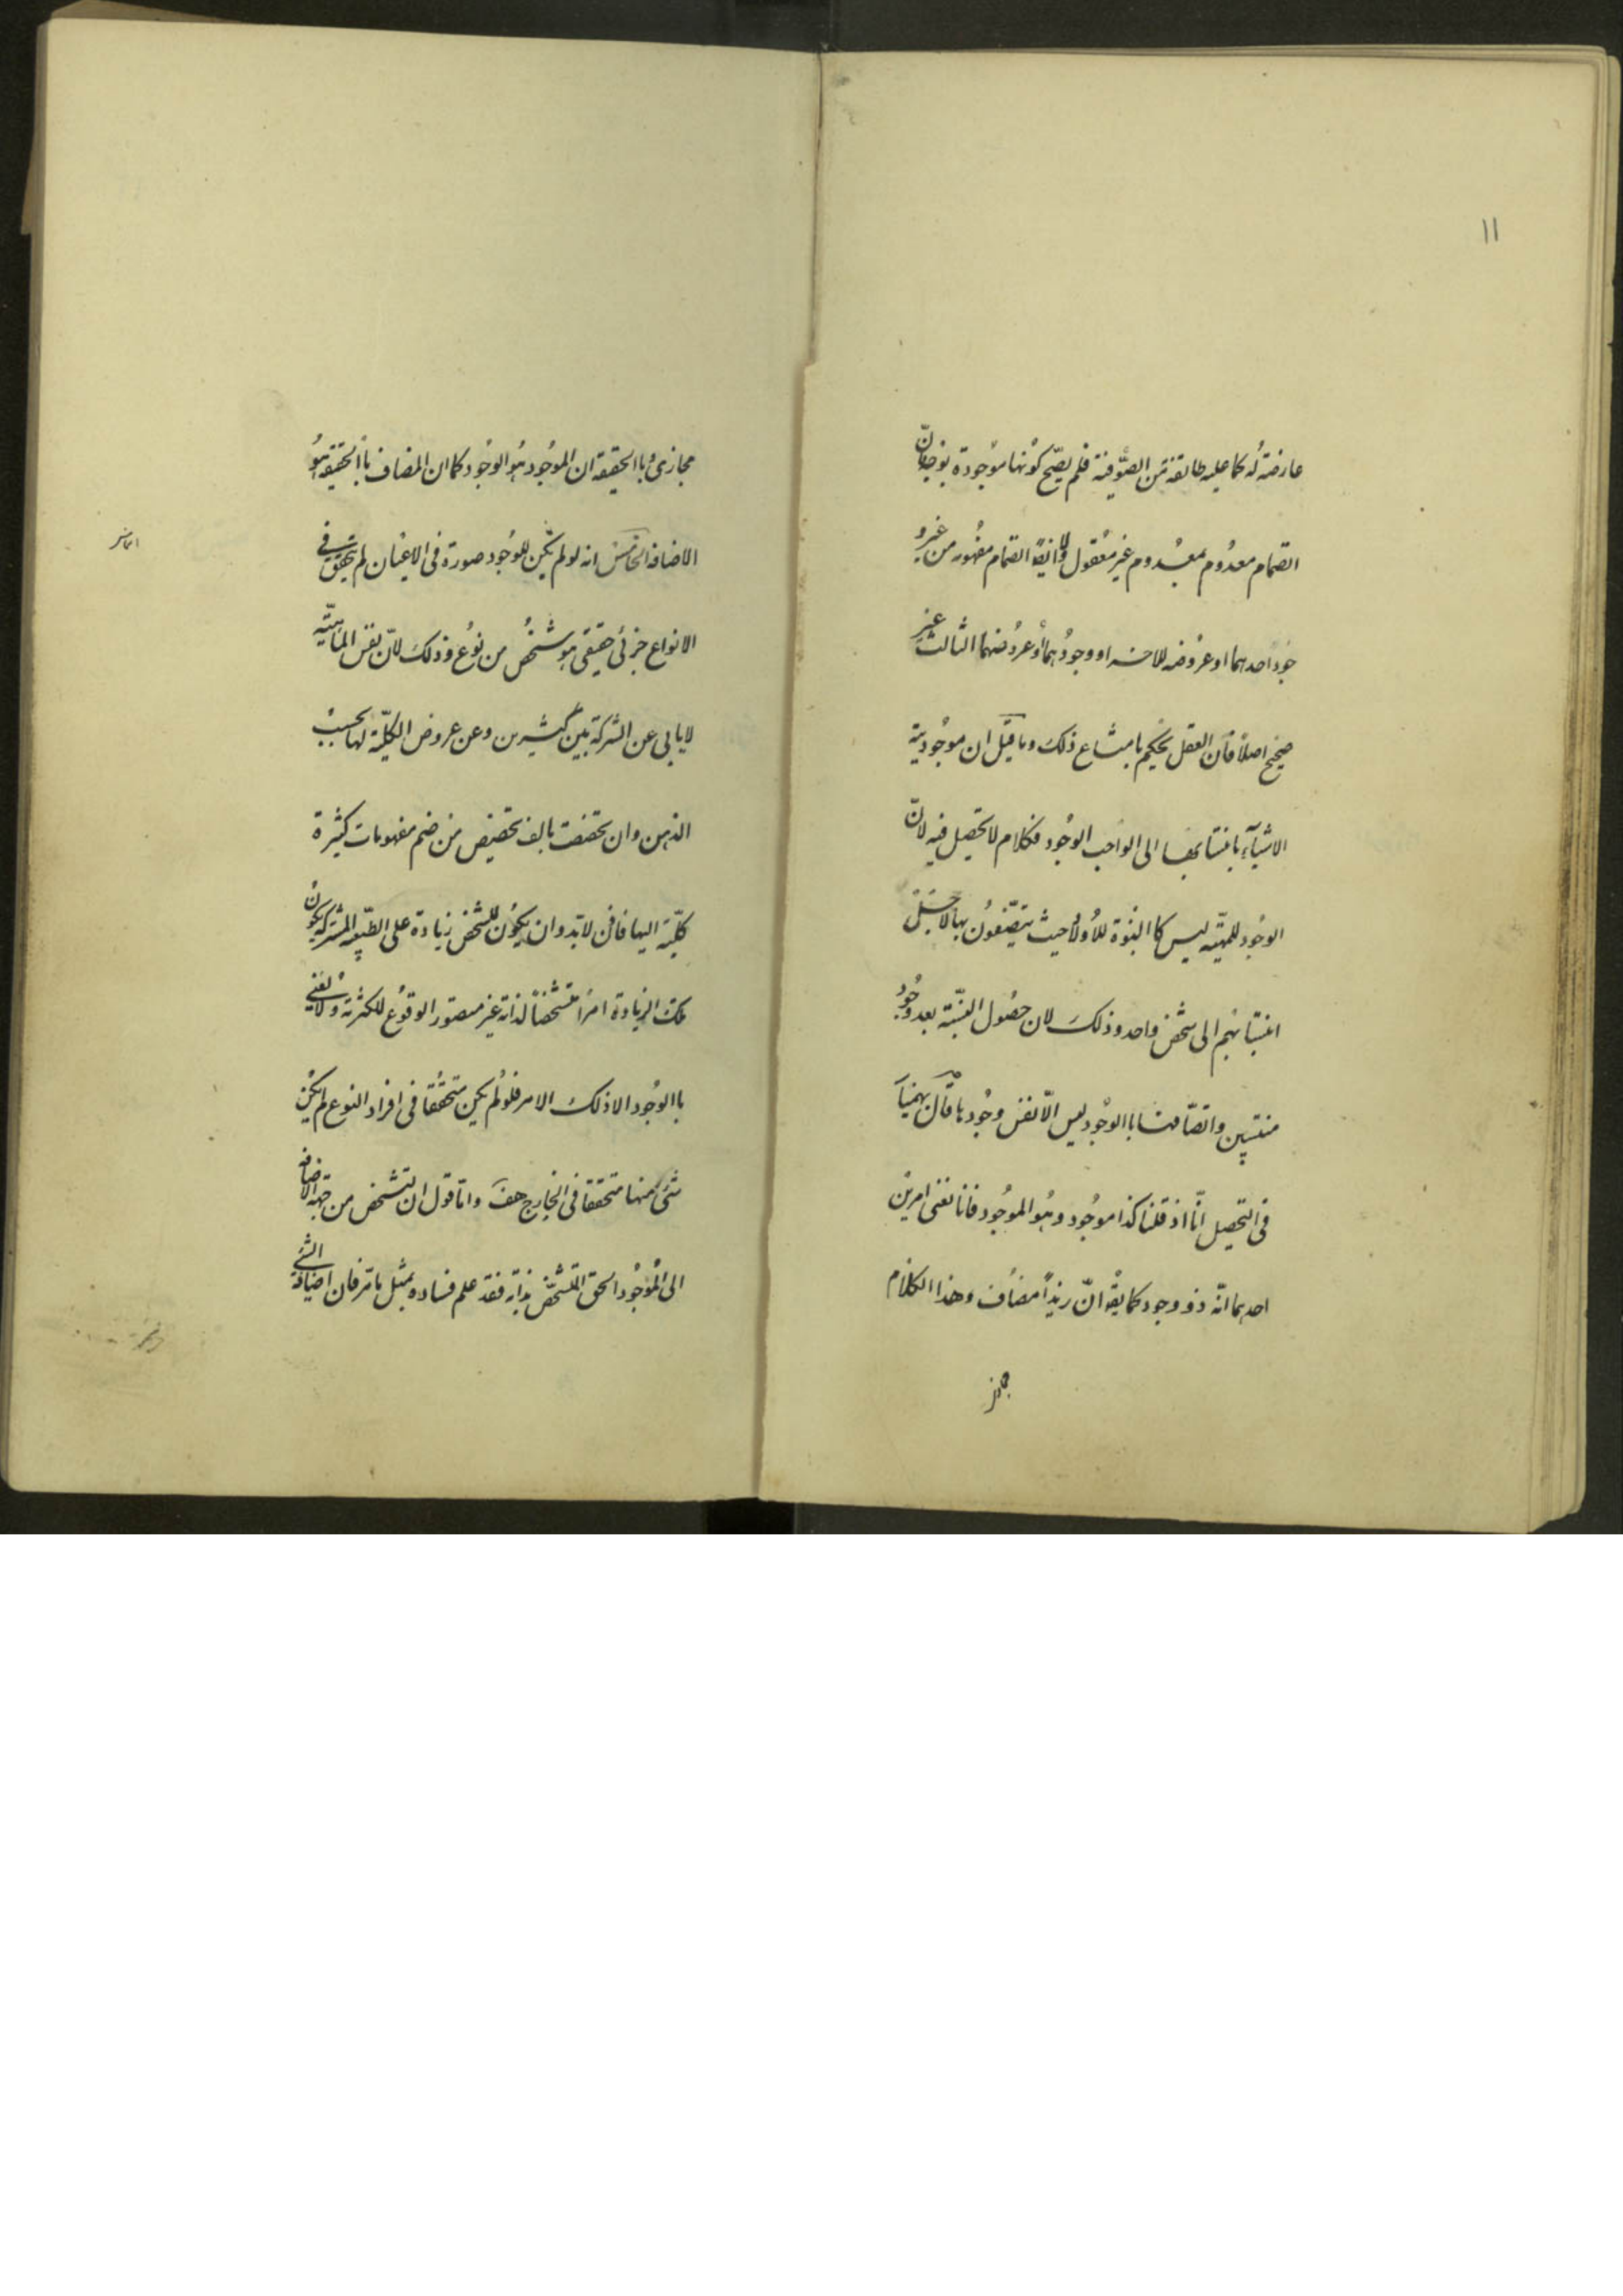 ١١
عارضة له كما عليه طائفة من الصوفية فلم يصح كونها موجودة بوجه فان
انضمام معدوم بمعدوم غير معقول وايضا انضمام مفهوم من غير و
جود احدهما او عروضه للاخر او وجودهما او عروضهما الثالث غير
صحيح اصلا فان العقل يحكم بامتناع ذلك وما قيل ان موجودية
الاشياء بانتسابها الى الواجب الوجود فكلام لا تحصيل فيه لان
الوجود للمهية ليس كالبنوة للاولاد حيث يتصفون بها لاجل
انتسابهم الى شخص واحد وذلك لان حصول النسبة بعد وجود
منتسبين واتصافها باالوجود ليس الا نفس وجودها قال بهمنيار
فى التحصيل انا اذ قلنا كذا موجود وهو الموجود فانا نعنى امرين
احدهما انه ذو وجود كما يقه ان زيدا مضاف وهذا الكلام
مجاز
مجازى و باالحقيقة ان الموجود هو الوجود كما ان المضاف باالحقيقة هو
الاضافة الخامس انه لو لم يكن للوجود صورة فى الاعيان لم يتحقق فى
الانواع جزئى حقيقى هو شخص من نوع وذلك لان نفس الماهية
لا يابى عن الشركة بين كثيرين وعن عروض الكلية لها بحسب
الذهن وان تخصصت بالف تخصيص من ضم مفهومات كثيرة
كلية اليها فاذن لابد وان يكون للشخص زيادة على الطبيعة المشتركة يكون
تلك الزيادة امرا متشخصا لذاته غير متصور الوقوع للكثرة ولا نعنى
باالوجود الا ذلك الامر فلو لم يكن متحققا فى افراد النوع لم يكن
شئ منها متحققا فى الخارج هف واما قول ان تشخص من جهة الاضافة
الى الموجود الحق المتشخص بذاته فقد علم فساده بمثل ما مر فان اضافة الشئ